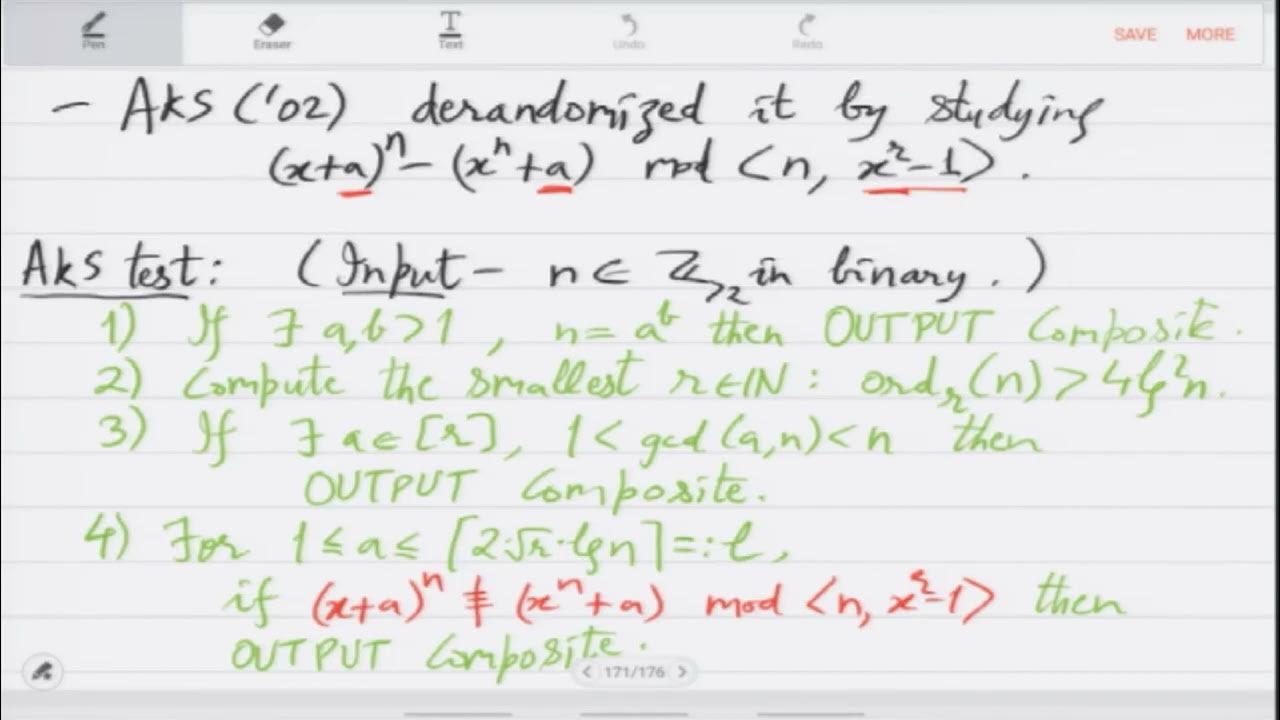 Pen Eraser Text Undo Redo SAVE MORE
- AKS ('02) derandomized it by studying
(x+a)ⁿ - (xⁿ+a) mod <n, xʳ-1>.
AKS test: (Input - n ∈ ℤ_{>2} in binary.)
1) If ∃ a,b>1, n = aᵇ then OUTPUT Composite.
2) Compute the smallest r∈ℕ: ordᵣ(n) > 4lg²n.
3) If ∃ a∈[r], 1 < gcd(a,n) < n then
OUTPUT Composite.
4) For 1 ≤ a ≤ ⌈2·√r·lg n⌉ =: ℓ,
if (x+a)ⁿ ≢ (xⁿ+a) mod <n, xʳ-1> then
OUTPUT Composite.
< 171/176 >